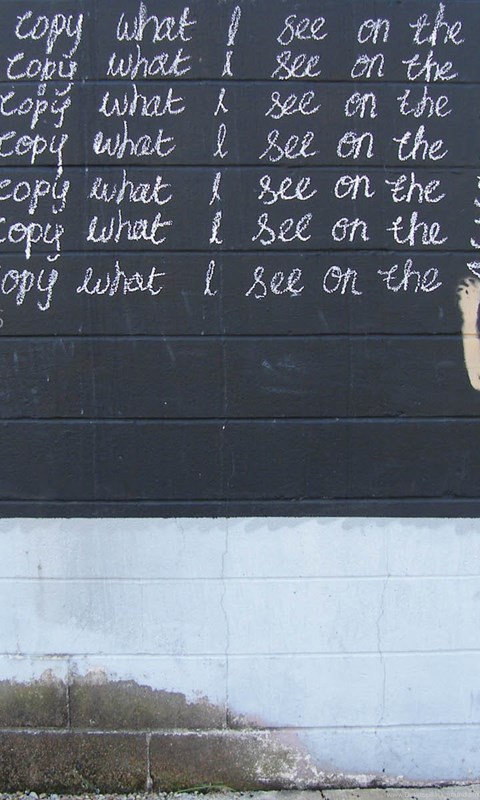 copy what I see on the
copy what I see on the
copy what I see on the
copy what I see on the
copy what I see on the
copy what I see on the
copy what I see on the